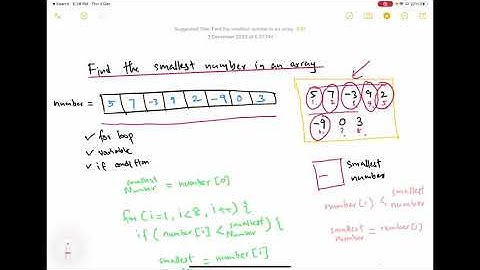 Suggested Title: Find the smallest number in an array
3 December 2020 at 5:37 PM
Find the smallest number in an array
number = 5 7 -3 9 2 -9 0 3
5 7 -3 9 2
-9 0 3
✓ for loop
✓ variable
✓ if condition
smallest
number
smallest
Number = number[0]
for (i=1, i<8, i++) {
if (number[i] < smallest Number) {
smallest = number[i]
number[i] < smallest number
smallest number = number[i]